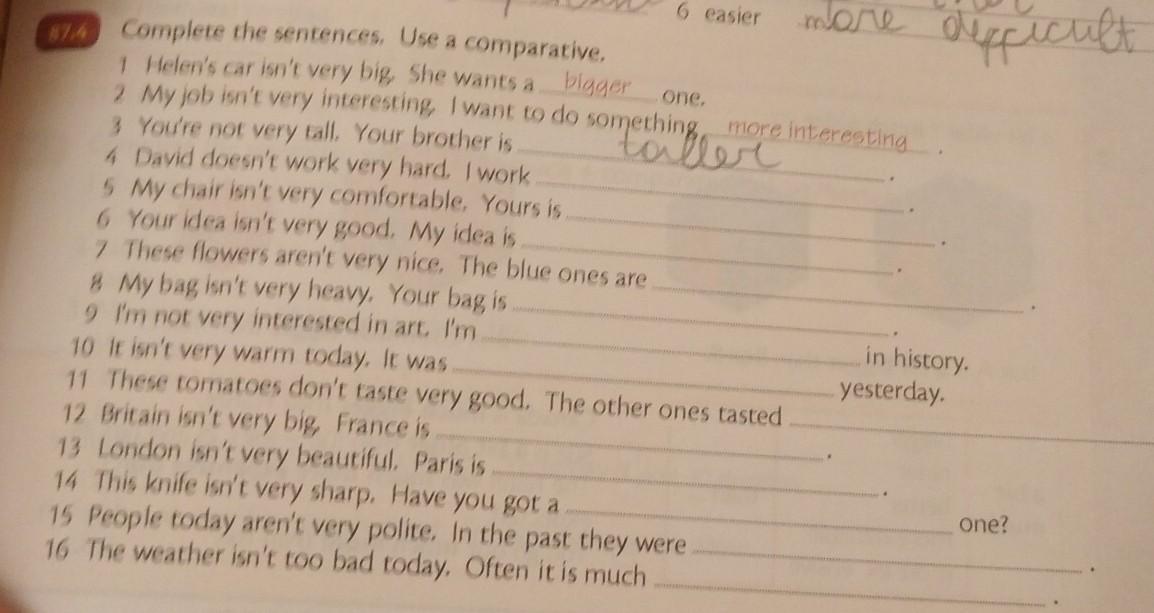 6 easier more difficult
87.4 Complete the sentences. Use a comparative.
1 Helen's car isn't very big. She wants a bigger one.
2 My job isn't very interesting. I want to do something more interesting .
3 You're not very tall. Your brother is taller .
4 David doesn't work very hard. I work .
5 My chair isn't very comfortable. Yours is .
6 Your idea isn't very good. My idea is .
7 These flowers aren't very nice. The blue ones are .
8 My bag isn't very heavy. Your bag is .
9 I'm not very interested in art. I'm in history.
10 It isn't very warm today. It was yesterday.
11 These tomatoes don't taste very good. The other ones tasted
12 Britain isn't very big. France is .
13 London isn't very beautiful. Paris is .
14 This knife isn't very sharp. Have you got a one?
15 People today aren't very polite. In the past they were .
16 The weather isn't too bad today. Often it is much .